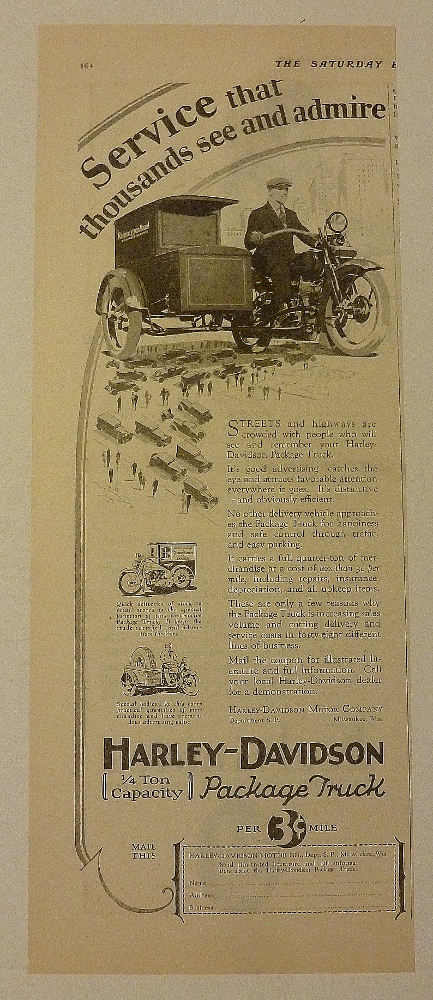 THE SATURDAY
Service that
thousands see and admire
STREETS and highways are
crowded with people who will
see and remember your Harley-
Davidson Package Truck.
It's good advertising, catches the
eye and attracts favorable attention
everywhere it goes. It's distinctive
—and obviously efficient.
No other delivery vehicle approach-
es the Package Truck for handiness
and safe control through traffic,
and easy parking.
It carries a full quarter-ton of mer-
chandise at a cost of less than 3c per
mile, including repairs, insurance,
depreciation, and all upkeep items.
These are only a few reasons why
the Package Truck is increasing sales
volume and cutting delivery and
service costs in forty-eight different
lines of business.
Mail the coupon for illustrated lit-
erature and full information. Call
your local Harley-Davidson dealer
for a demonstration.
HARLEY-DAVIDSON MOTOR COMPANY
Department S. P. Milwaukee, Wis.
HARLEY-DAVIDSON
1/4 Ton
Capacity
Package Truck
PER 3¢ MILE
MAIL
THIS
HARLEY-DAVIDSON MOTOR CO., Dept. S. P., Milwaukee, Wis.
Name
Address
Business